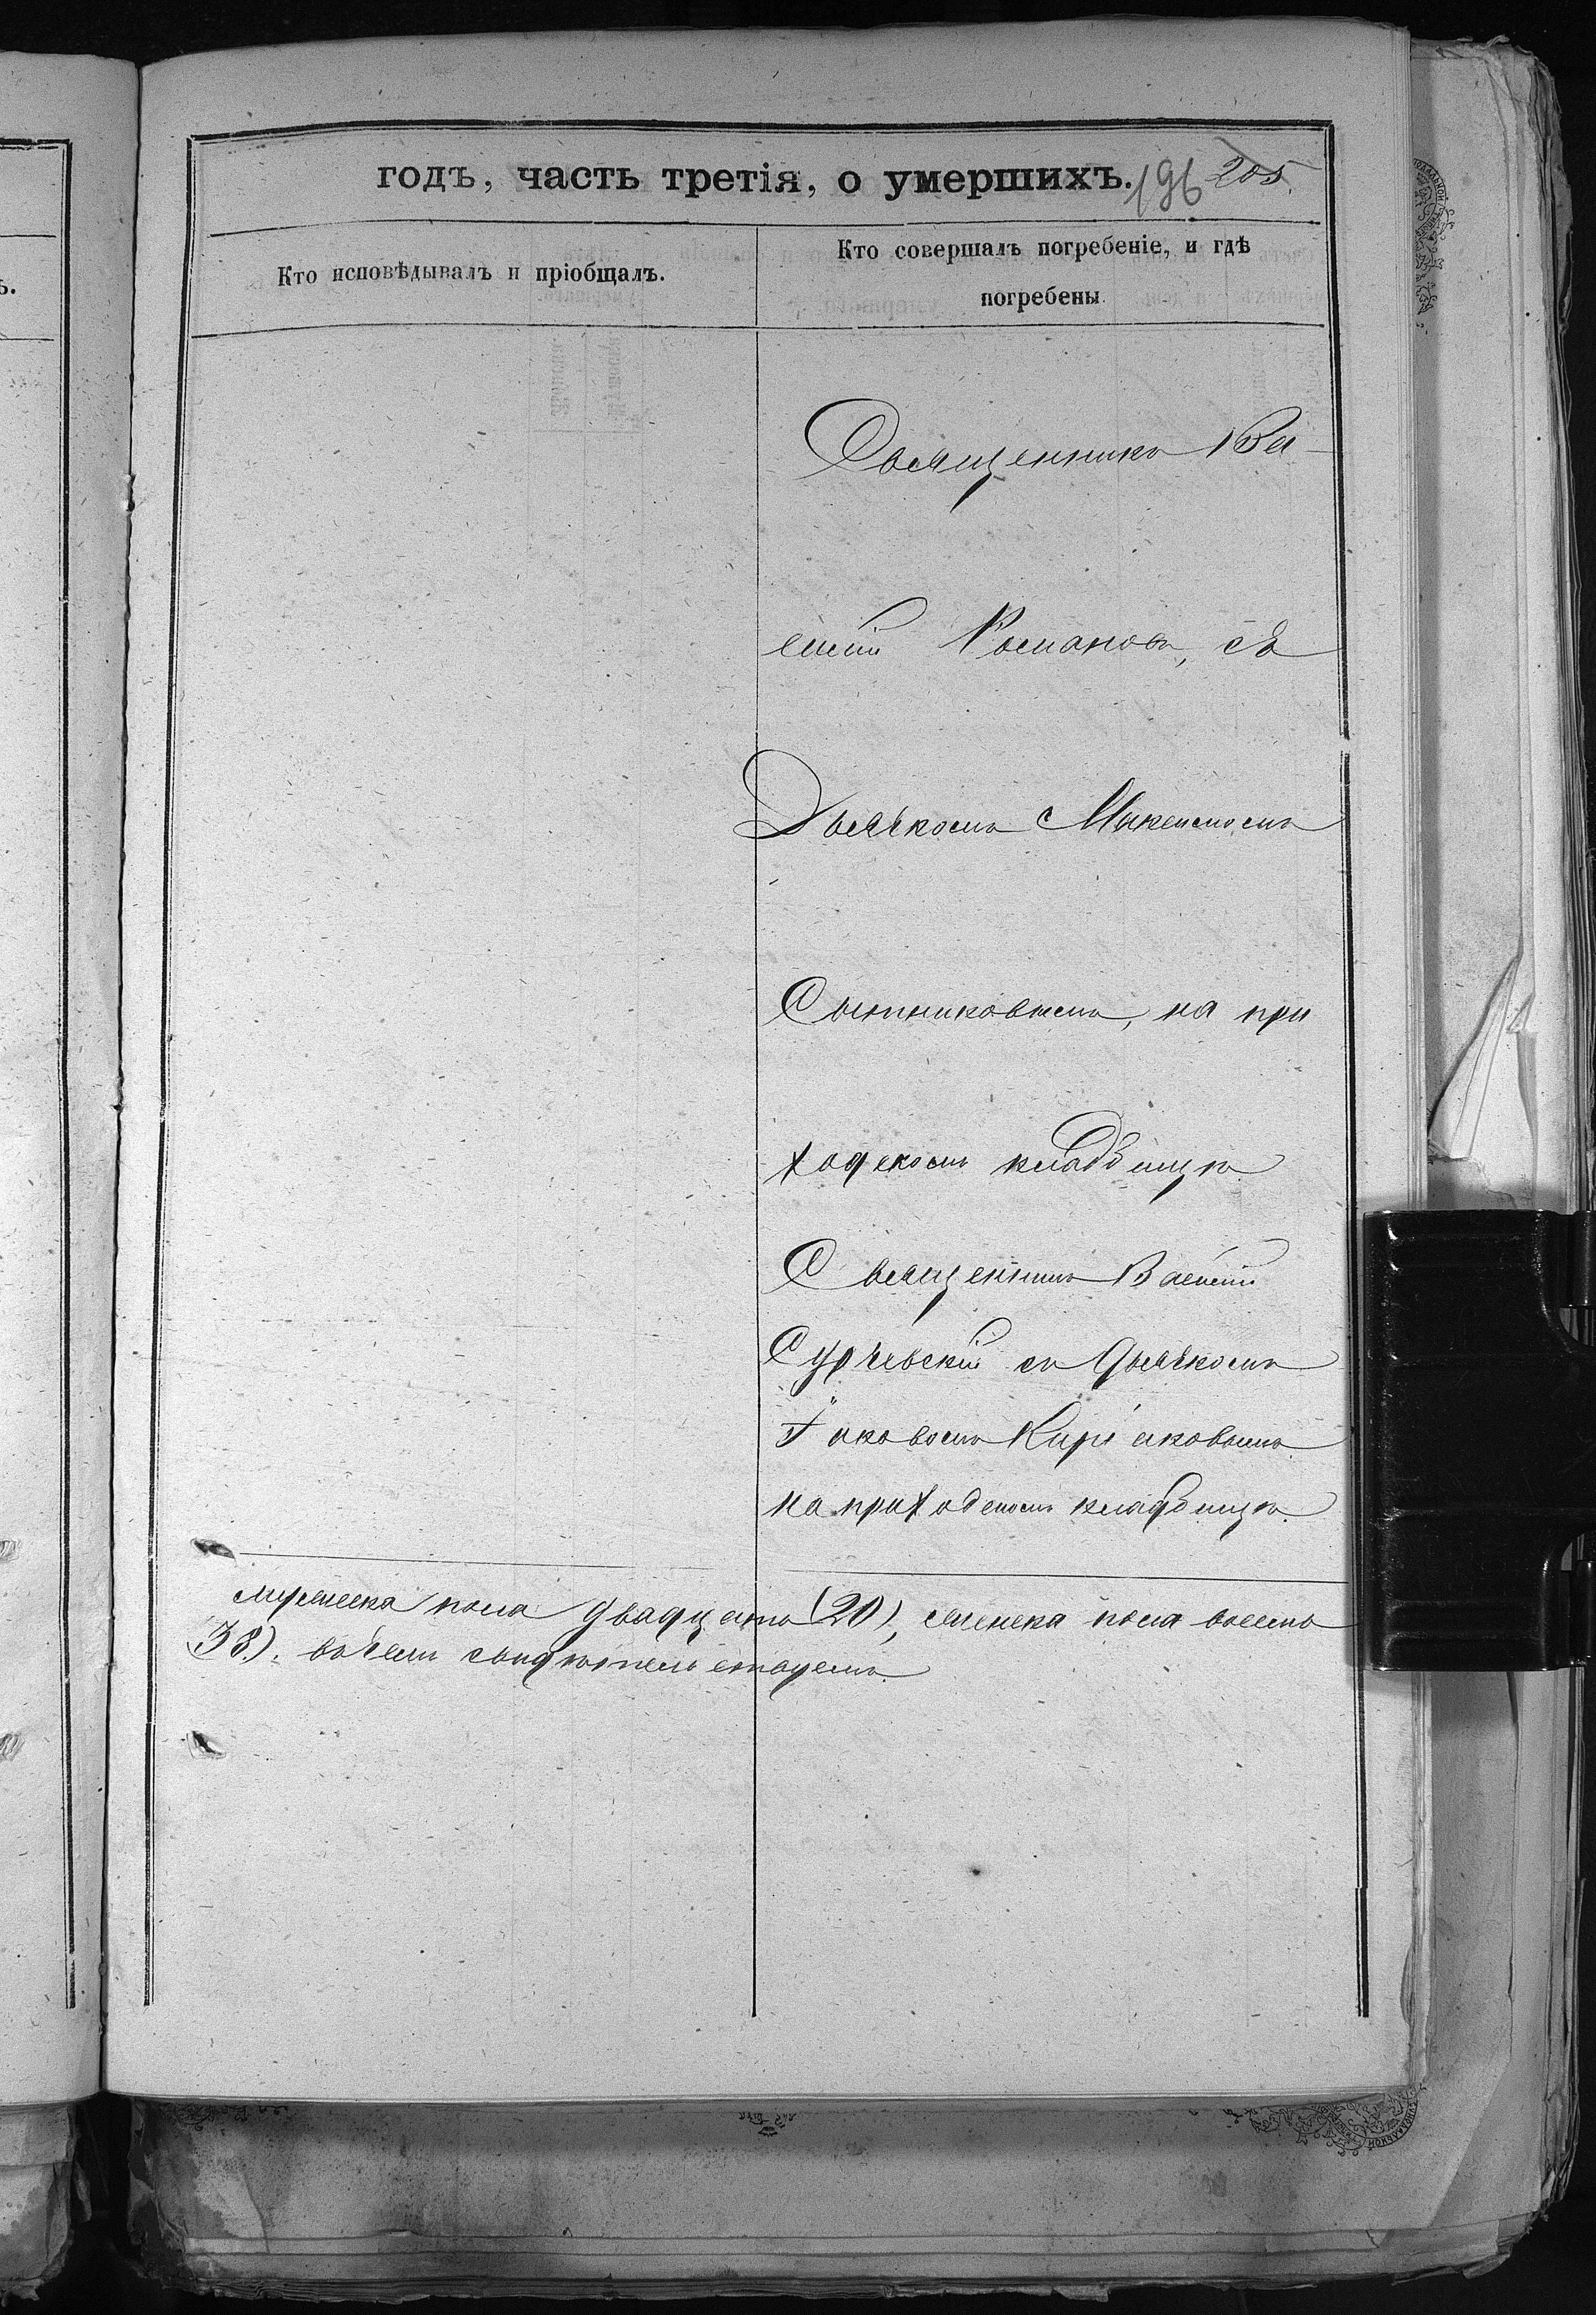 годъ, часть третія, о умершихъ. 196 205
Кто исповѣдывалъ и пріобщалъ.
Кто совершалъ погребеніе, и гдѣ
погребены
Священникъ Ва-
силій Романовъ, съ
Дьячкомъ
Сытниковымъ, на при
ходскомъ кладбищѣ
Священникъ Василій
Сурчевскій съ дьячкомъ
Іаковомъ Киріаковымъ
на приходскомъ кладбищѣ.
мужеска пола двадцать (20), женска пола восемь
38). въ чемъ свидѣтельствуемъ.